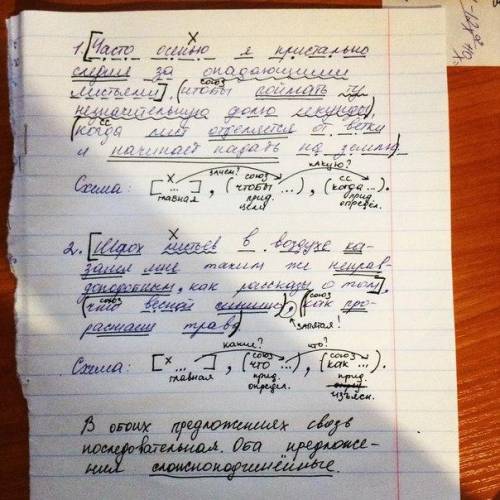 1. [Часто осенью я пристально
следил за опадающими
листьями], (чтобы поймать ту
союз
незначительную долю секунды),
(когда лист отделяется от ветки
сс
и начинает падать на землю)
Схема: [ х ... ], (чтобы ...), (когда ...).
зачем? союз какую? сс
главная прид. цели прид. определ.
2. [Шорох листьев в воздухе ка-
зался мне таким же неправ-
доподобным, как рассказы о том],
(что весной слышно), (как про-
союз союз
растает трава)
запятая!
Схема: [ х ... ], (что ...), (как ...).
какие? союз что? союз
главная прид. определ. прид. изъясн.
В обоих предложениях связь
последовательная. Оба предложе-
ния сложноподчинённые.